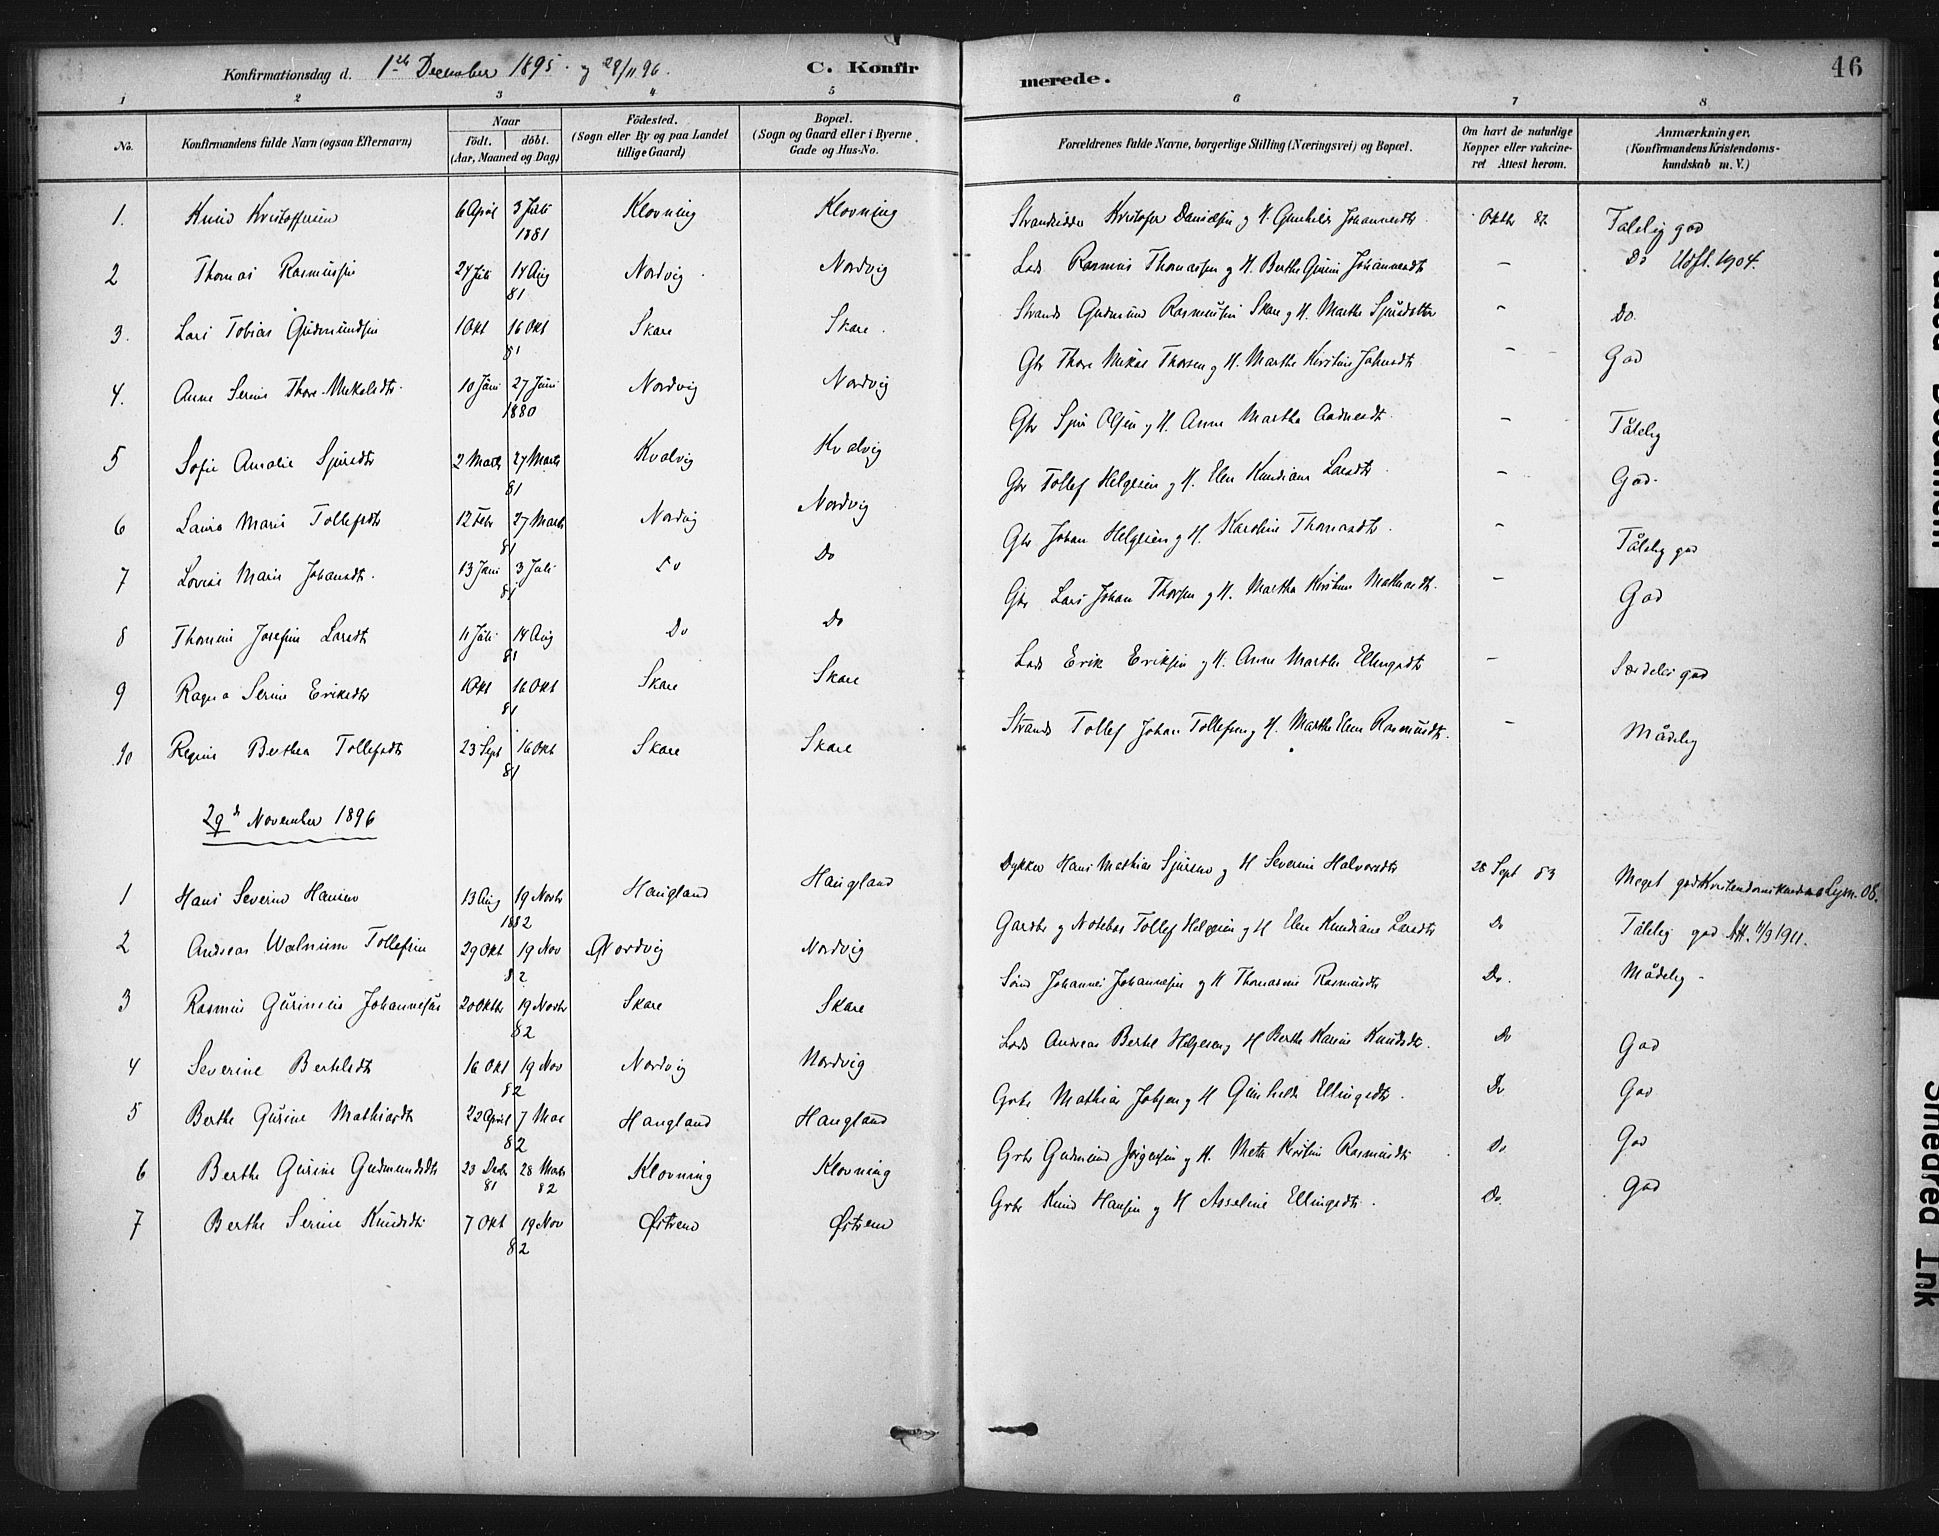 Konfirmationsdag d. 1ste December 1895. og 29/11 96. C. Konfirmerede. 46
1 2 3 4 5 6 7 8
No. Konfirmandens fulde Navn (ogsaa Efternavn) Naar födt. döbt. (Aar, Maaned og Dag) Födested. (Sogn eller By og paa Landet tillige Gaard) Bopæl. (Sogn og Gaard eller i Byerne Gade og Hus-No. Forældrenes fulde Navne, borgerlige Stilling (Næringsvei) og Bopæl. Om havt de naturlige Kopper eller vakcineret Attest herom. Anmærkninger. (Konfirmandens Kristendomskundskab m. V.)
1. Knud Kristoffersen 6 April 3 Juli 1881 Klovning Klovning Strandsidder Kristofer Danielsen og H. Gunhilde Johannesdtr Oktbr 82. Tålelig god
2 Thomas Rasmussen 24 Juli 14 Aug 81 Nordvig Nordvig Lods Rasmus Thomassen og H. Berthe Gurine Johannesdtr — Do Udfl. 1904.
3. Lars Tobias Gudmundsen 1 Okt 16 Okt 81 Skare Skare. Strands Gudmund Rasmussen Skare og H. Marthe Sjursdatter — Do.
4. Anne Serine Thore Mikalsdtr. 10 Juni 27 Juni 1880 Nordvig Nordvig Gbr Thore Mikal Thorsen og H. Marthe Kirstine Johnsdtr — God
5 Sofie Amalie Sjursdtr 2 Marts 27 Marts 81 Kvalvig Kvalvig Gbr Sjur Olsen og H. Anne Martha Aadnesdtr. — Tålelig
6 Laura Marie Tollefsdtr 12 Febr 27 Marts 81 Nordvig Nordvig Gbr Tollef Helgesen og H. Elen Kundiane Larsdtr. — God.
7 Lovise Marie Johansdtr. 13 Juni 3 Juli 81 Do Do Gbr Johan Helgesen og H. Karoline Thomasdtr. — Tålelig god
8 Thomine Josefine Larsdtr 11 Juli 14 Aug 81 Do Do Gbr Lars Johan Thorsen og H. Martha Kirstine Mathiasdtr. — God
9 Ragna Serine Eriksdtr 1 Okt 16 Okt 81 Skare Skare Lods Erik Eriksen og H. Anne Marthe Ellingsdtr — Særdeles god
10 Regine Berthea Tollefsdtr 23 Sept 16 Okt 81 Skare Skare Strands Tollef Johan Tollefsen og H. Marthe Elen Rasmusdtr. — Mådelig
29de November 1896
1 Hans Severin Hansen 13 Aug 19 Novbr 1882 Haugland Haugland Dykker Hans Mathias Sjursen og H Severine Halvorsdtr 25 Sept 83 Meget god Kristendomskundsk.
2 Andreas Walnum Tollefsen 29 Okt 19 Nov 82 Nordvig Nordvig Gardbr og Notebas Tollef Helgesen og H Elen Kundiane Larsdtr Do Tålelig god Att. 11/9 1911.
3 Rasmus Gurinius Johannesen 20 Oktbr 19 Novbr 82 Skare Skare Johannes Johannesen og H Thomasine Rasmusdtr Do. Mådelig.
4 Severine Bertelsdtr 16 Okt 19 Nov 82 Nordvig Nordvig Lods Andreas Bertel Helgesen og H Berthe Karine Knudsdtr. Do God
5 Berthe Gurine Mathiasdtr 22 April 7 Mai 82 Haugland Haugland Grbr Mathias Jobsen og H Gunhilde Ellingsdtr. Do God
6 Berthe Gurine Gudmundsdtr 23 Decbr 81 28 Marts 82 Klovning Klovning Grbr Gudmund Jørgensen og H. Mete Kirstine Rasmusdtr Do. God
7 Berthe Serine Knudsdtr 7 Okt 19 Nov 82 Østrem Østrem Grbr Knud Hansen og H Asseline Ellingsdtr. Do. God
Faded Document
Smeared Ink